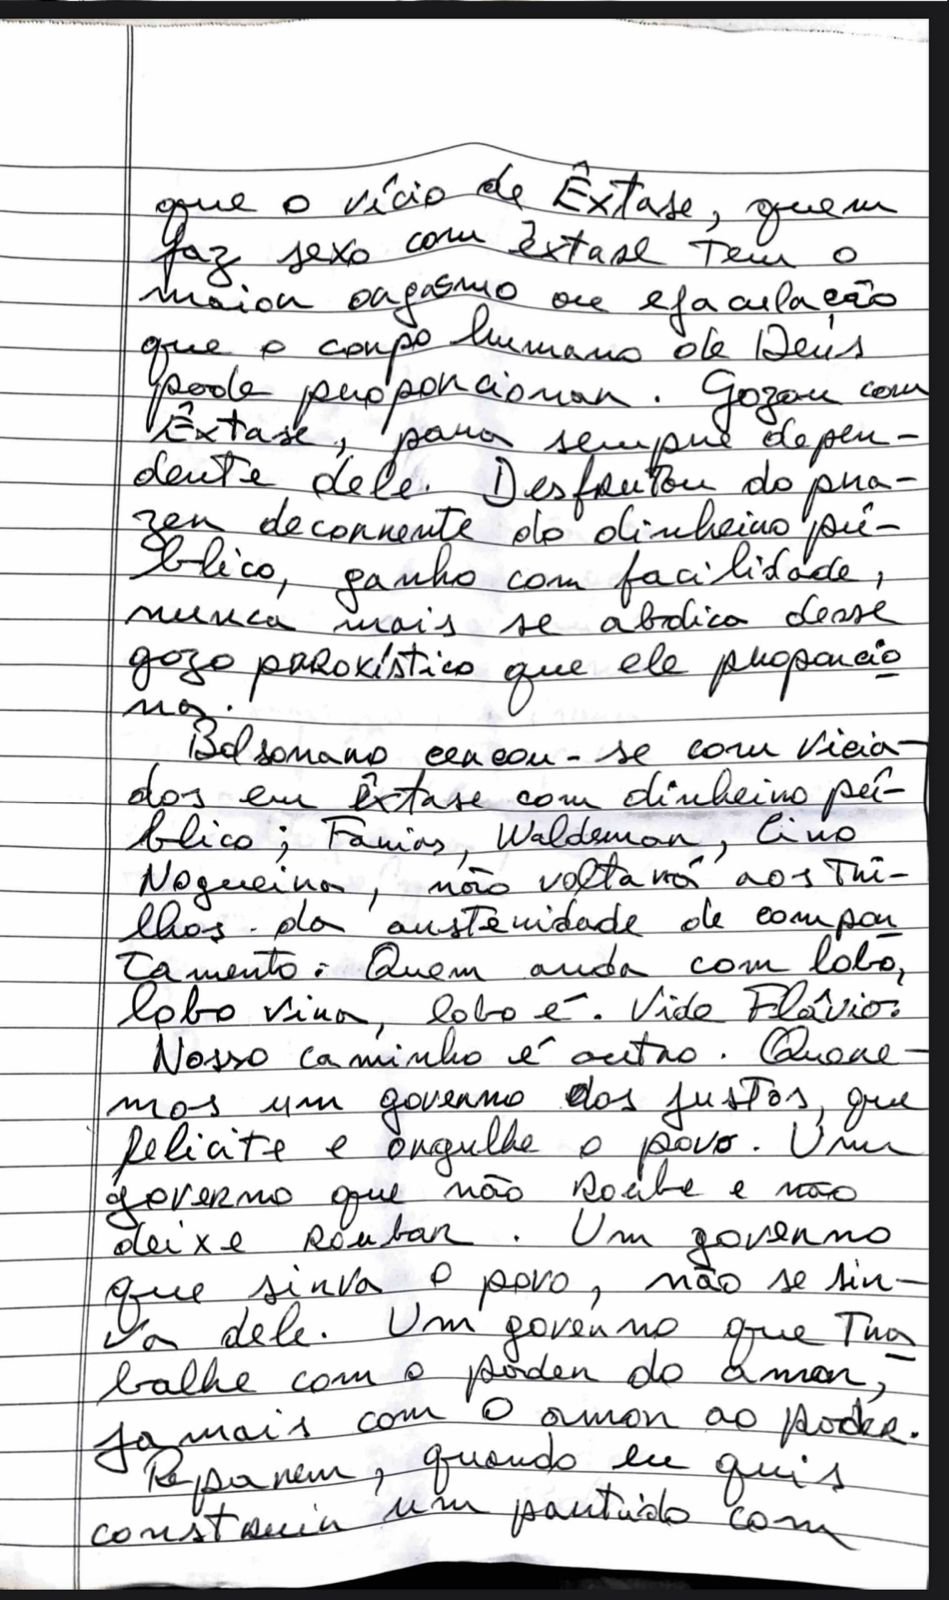 que o vício de Êxtase, quem
faz sexo com êxtase tem o
maior orgasmo ou ejaculação
que o corpo humano de Deus
pode proporcionar. Gozou com
Êxtase, para sempre depen-
dente dele. Desfrutou do pra-
zer decorrente do dinheiro pú-
blico, ganho com facilidade,
nunca mais se abdica desse
gozo paroxístico que ele proporcio
na.
Bolsonaro cercou-se com vicia-
dos em êxtase com dinheiro pú-
blico; Farias, Waldemar, Ciro
Nogueira, não voltará aos tri-
lhos da austeridade de compor
tamento. Quem anda com lobo,
lobo vira, lobo é. Vide Flávio.
Nosso caminho é outro. Quere-
mos um governo dos justos, que
felicite e orgulhe o povo. Um
governo que não roube e não
deixe roubar. Um governo
que sirva o povo, não se sir-
va dele. Um governo que tra
balhe com o poder do amor,
jamais com o amor ao poder.
Reparem, quando eu quis
construir um partido com